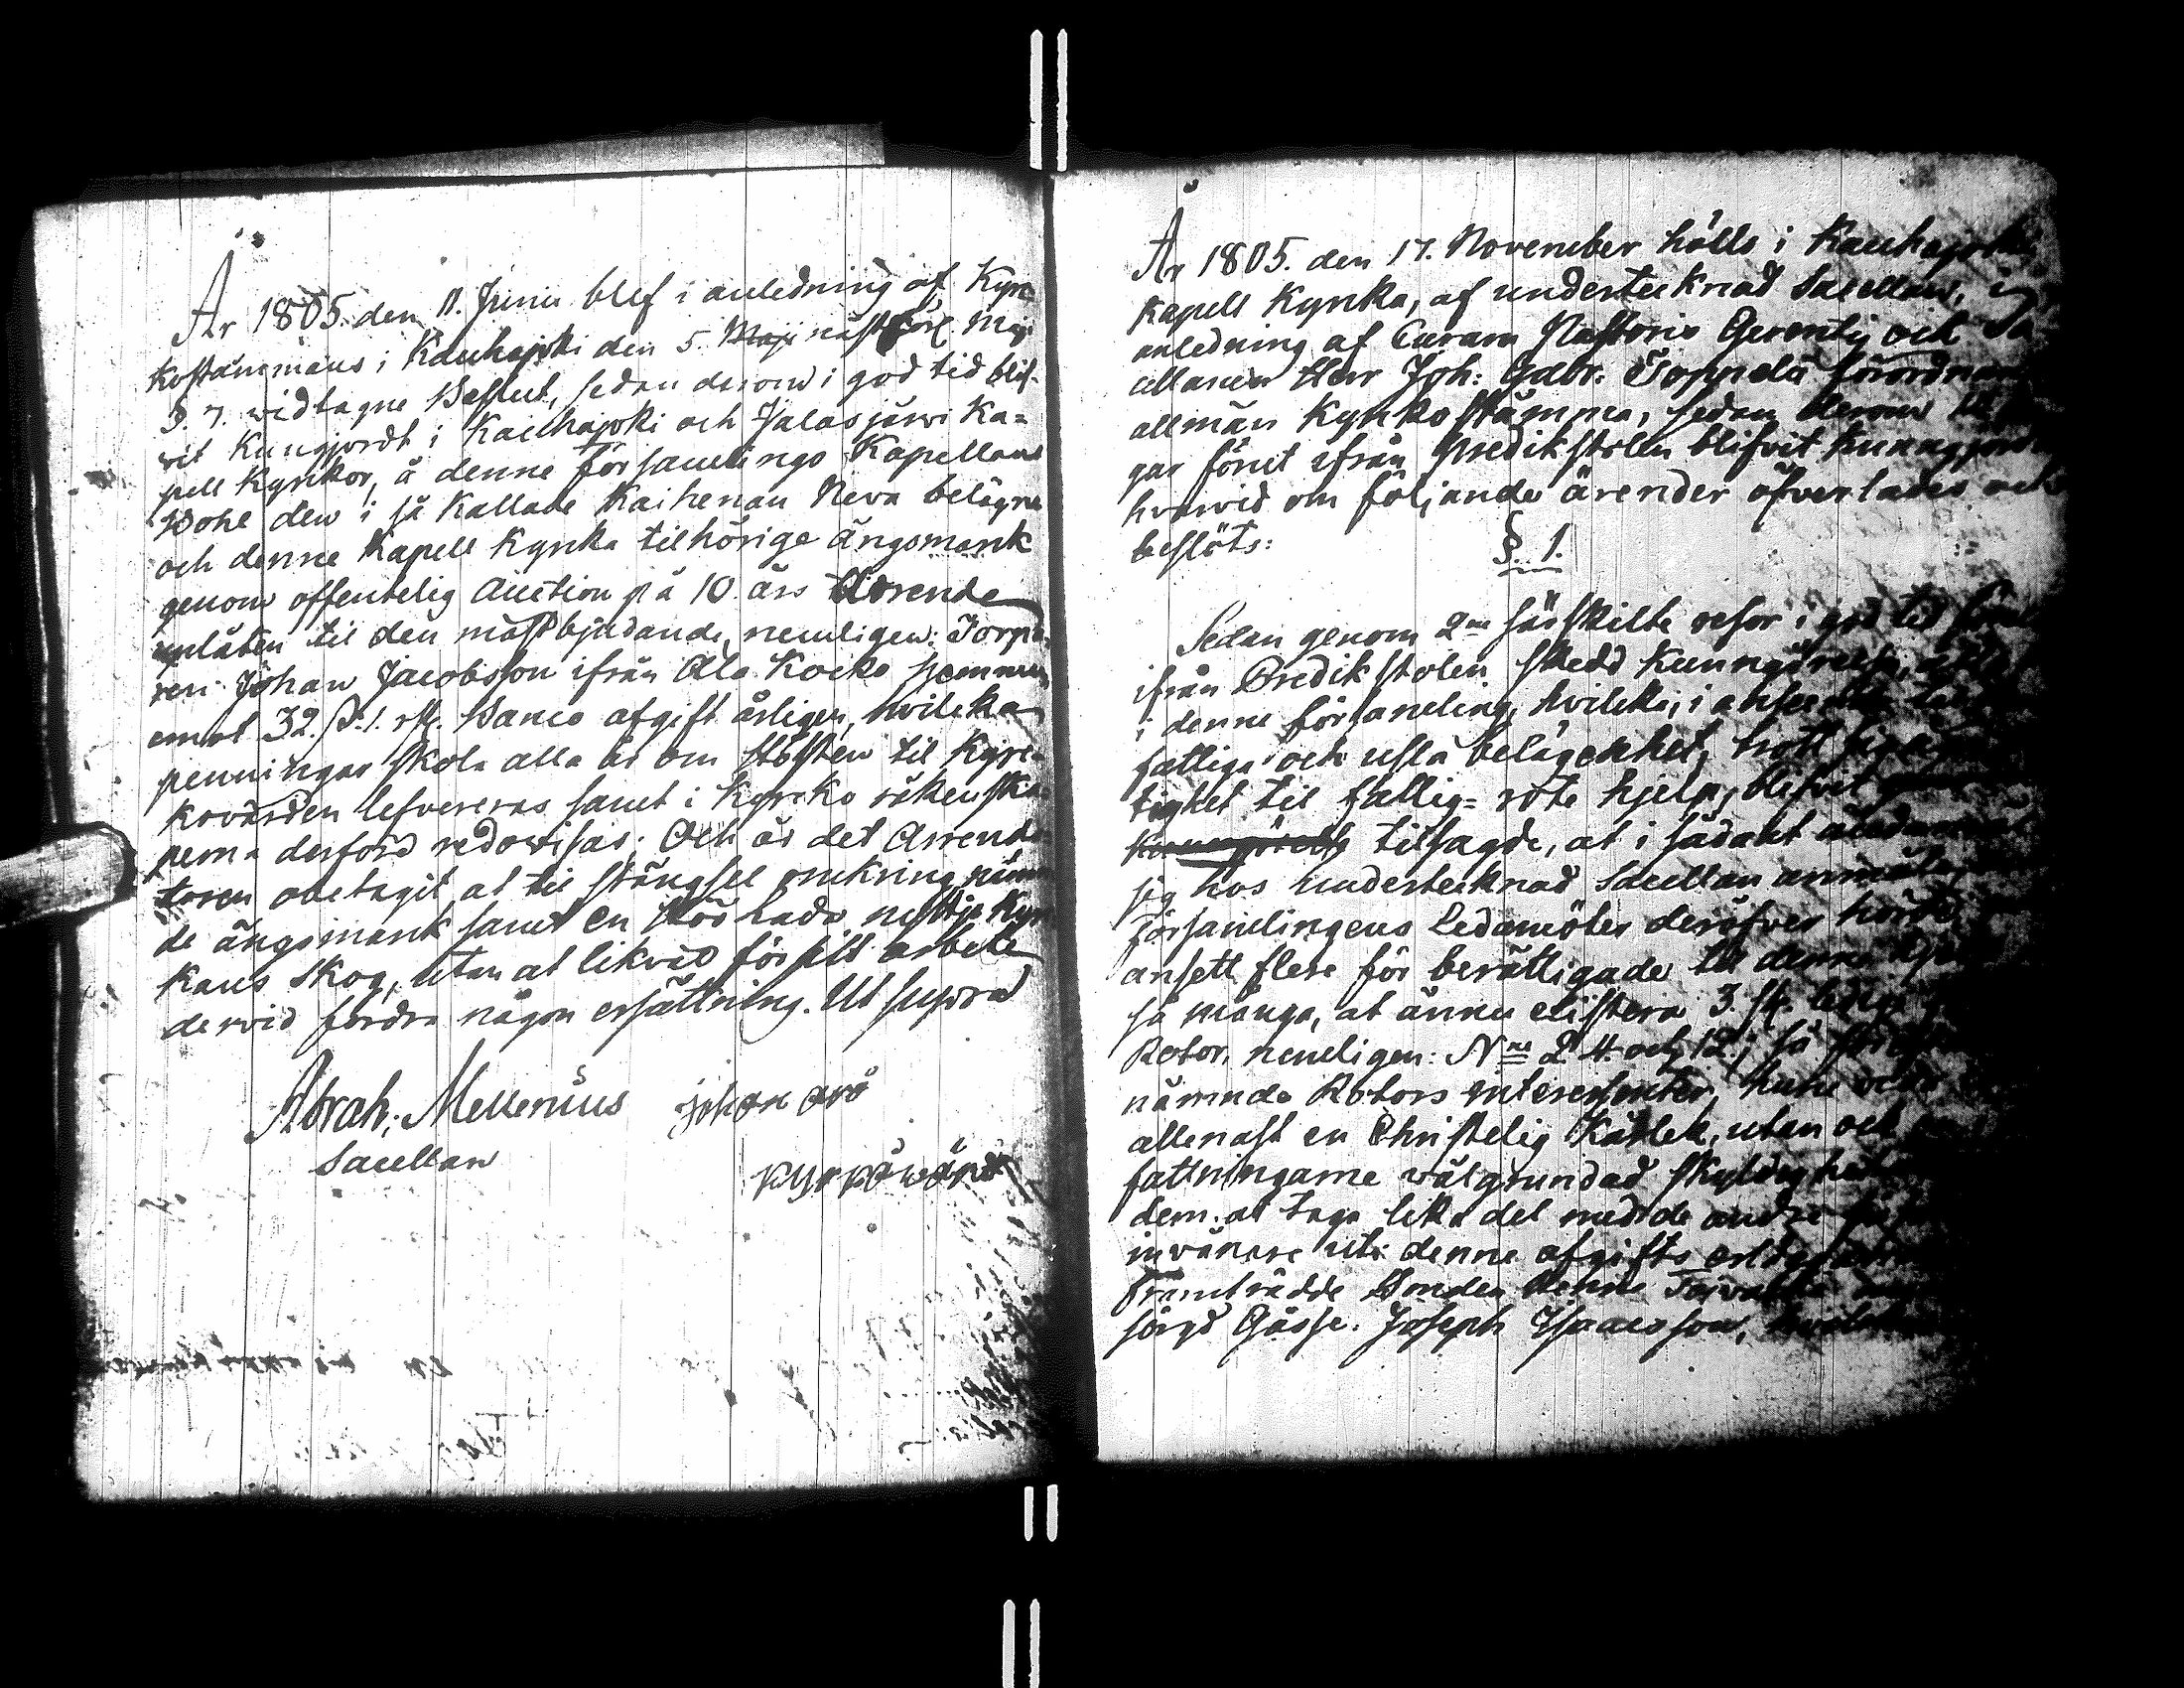 År 1805. den 11. Junii blef i anledning af Kyr-
kostämmans i Kauhajoki den 5. Maji nästför
§. 7. widtagne Beslut, sedan derom i god tid blif-
vit Kungjordt i Kauhajoki och Jalasjärvi Ka-
pell Kyrkor, å denne församlings Kapellans
Bohl den i så Kallade Kaihenan Neva belägne
och denne Kapell Kyrka tilhörige ängsmark
genom offentelig Auction på 10. års Arrende
uplåten til den mästbjudande, nemligen: Torpa-
ren Johan Jacobsson ifrån Ala Kocko hemman
emot 32. ß. 1. rdr. Banco afgift årligen, hvileka
penningar skola alla år om Hösten til Kyr-
kovärden lefvereras samt i Kyrko räkenska-
perna derförd redovisas. Och är det Arrenda
toren obetagit at til stängsel omkring nämn
de ängsmark samt en Hö lada nyttja Kyr
kans skog, utan at likväl för sitt arbete
dervid fordra någon ersättning. Ut supra
Abrah. Mellenius Johan Arö
Sacellan Kyrkowärd
År 1805. den 17. November hölls i Kauhajoki
Kapell Kyrka, af undertecknad Sacellan, i
anledning af Curam Pastoris Gerentis och Sa
cellanen Herr Joh: Gabr: Toppelii förordnan
allmän Kyrko stämma, sedan derom
gar förut ifrån Predikstolen blifvit kunngjord
hvarvid om följande ärender öfverlades och
beslöts:
§. 1.
Sedan genom 2ne särskilte resor i god tid
ifrån Predikstolen skedd Kunngörelse,
i denne församling, hvileka, i anseende
fattiga och usla belägenhet, trott sig
tighet til fattig-rote hjelp, blifvit
Kunngörelse tilsagde, at i sådant
sig hos undertecknad Sacellan anmäla,
församlingens Ledamöter deröfver hörde
ansett flere för berättigade til denne
så många, at ännu existera 3. st. ledige
Rotor, nemligen: Nris 2. 4. och 12; så
nämnde Rotors interessenter, hure
allenast en Christelig Kärlek, utan ock
fattningarne välgrundad skyldighet
dem at taga lika del med de andre
invånare uti denne afgifts erläggande
Framträdde Bonden
sörgd Gosse. Joseph Isaacsson,